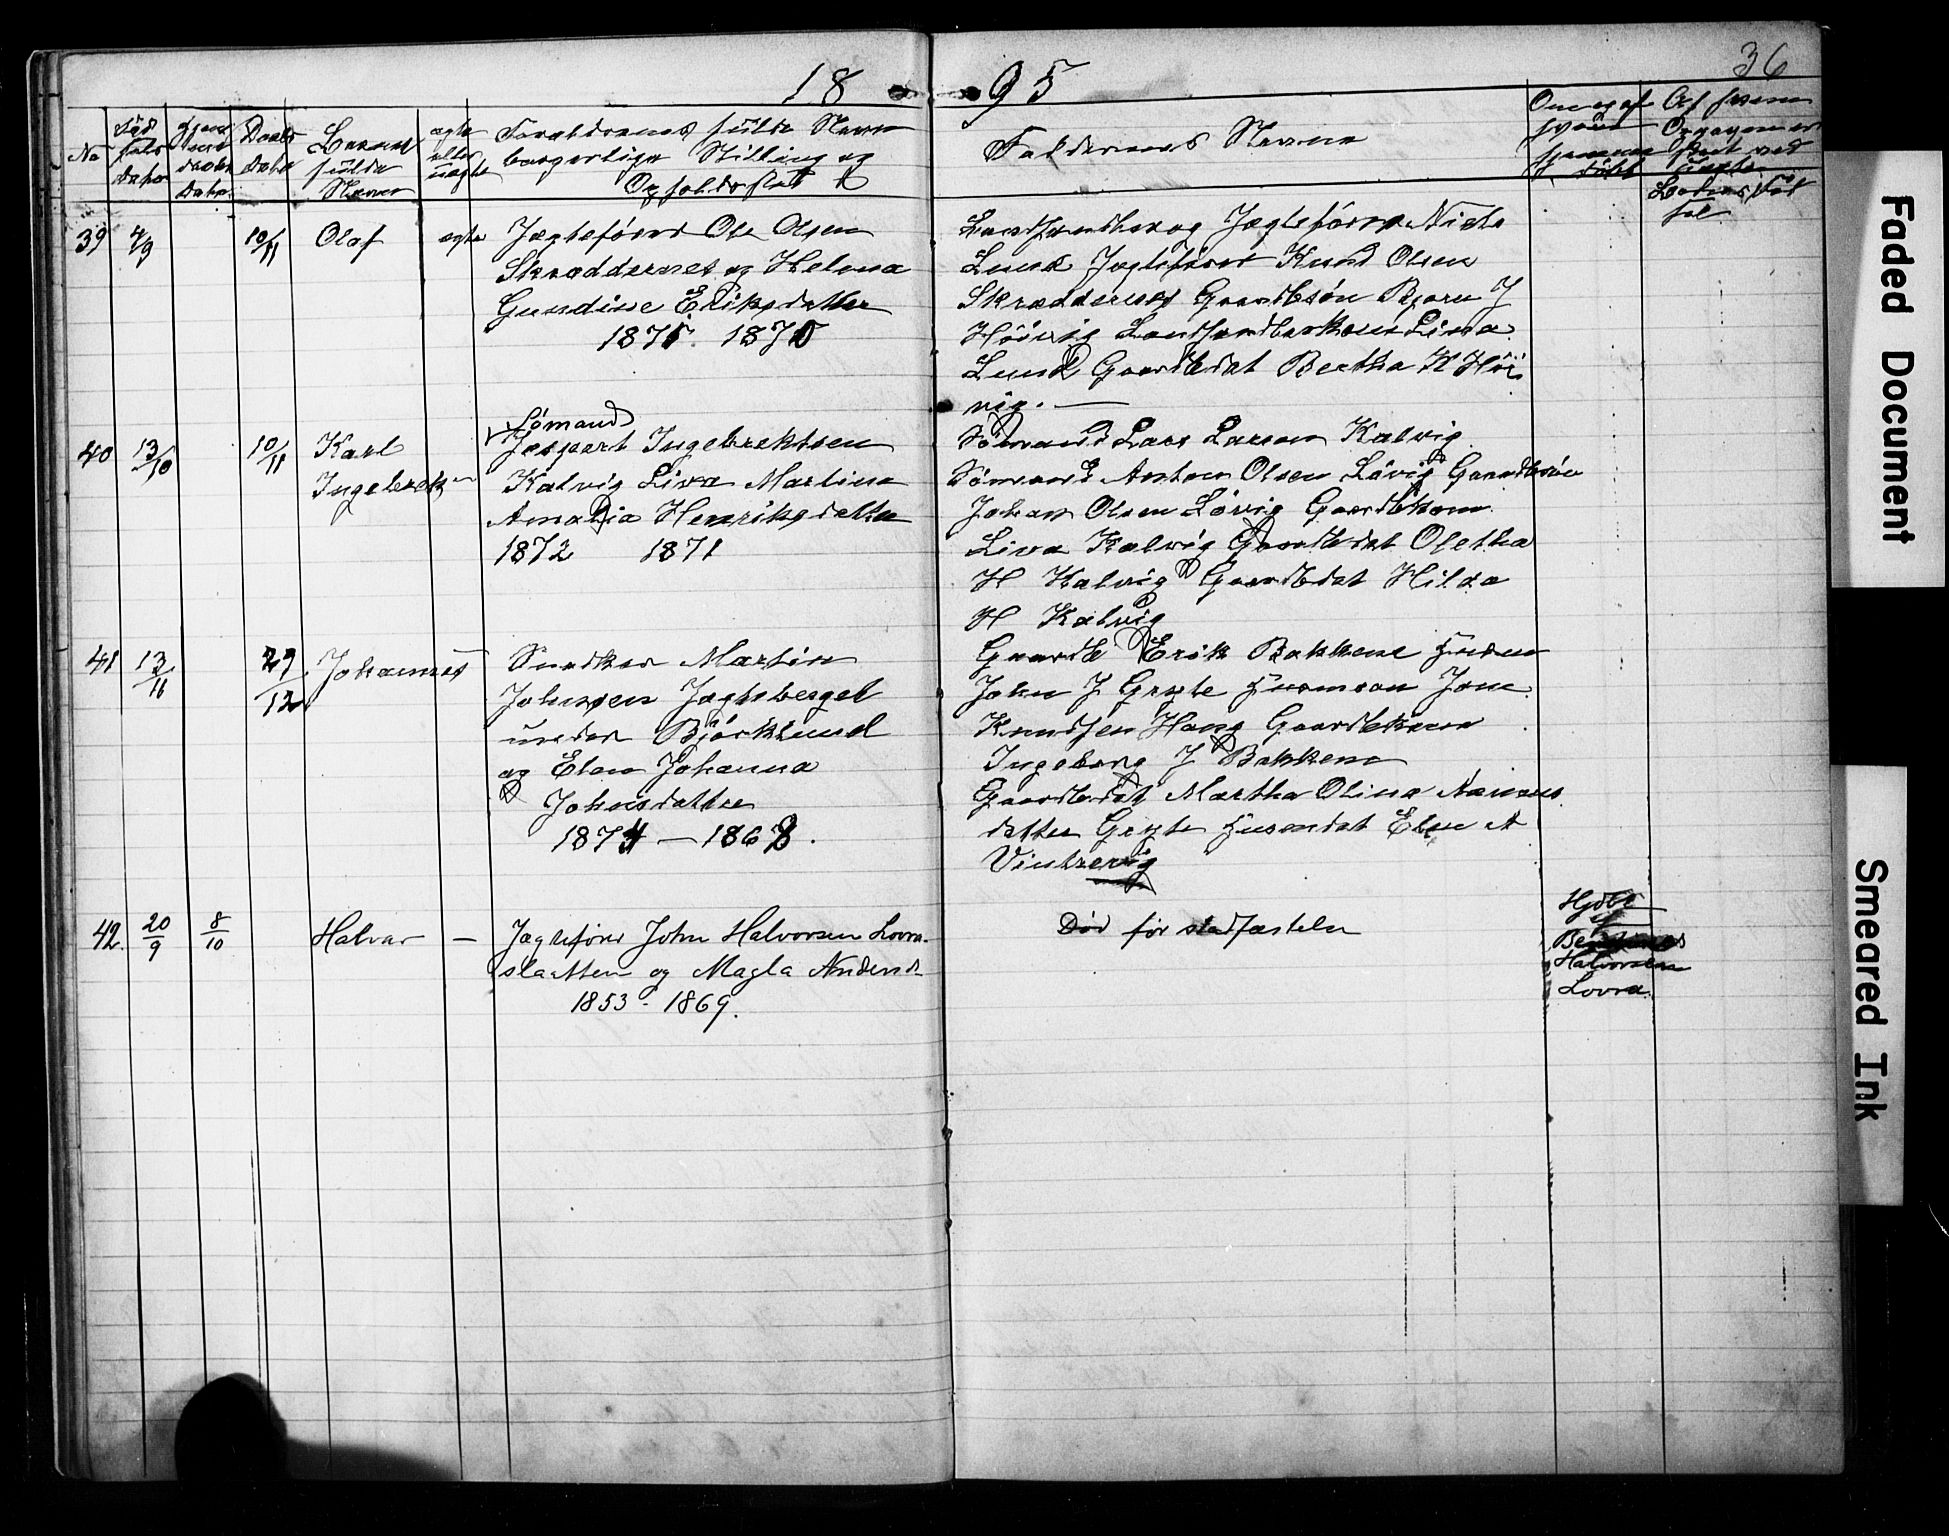 18 95
36
No
Födsels Dato
Hjemmedaabs Dato
Daabs Dato
Barnets fulde Navn
ægte eller uægte
Forældrenes fulde Navn
borgerlige Stilling og
Opholdssted
Faddernes Navne
Om og af hvem hjemmedöbt
Af hvem
39 4/9 10/11 Olaf ægte
Jægtefører Ole Olsen
Skræddernes og Helena
Gundine Eriksdatter
1875. 1870
Landhandler og Jægtefører Niels
Lund Jægtefører Knud Olsen
Skræddernes Gaardbsøn Bjørn J
Höivig Landhandlerkone Lina
Lund Gaardbdat Bertha H Höi
vig. —
40 13/10 10/11 Karl
Ingebrek
Sømand
Jespert Ingebrektsen
Kalvig Liva Martina
Amalia Henriksdatter
1872 1871
Sømand Lars Larsen Kalvig
Sømand Anton Olsen Lövig Gaardbsön
Johan Olsen Lövig Gaardbkone
Liva Kalvig Gaardbdat Oletha
H Kalvig Gaardbdat Hilda
H Kalvig
41 13/11 29/12 Johannes
Snedker Martin
Johnsen Jægteberget
under Björklund
og Elen Johanna
Johnsdatter
1874 — 1868.
Gaardb Erik Bakkene
John J Gryte Husmand Jens
Knudsen Haug Gaardbkone
Ingeborg J Bakkene
Gaardbdat Martha Olina
datter Gryte Husmdat Elen A
Vintervig
42. 20/9 8/10 Halvar —
Jægtefører John Halvorsen Lovra-
slaatten og Magla Andersd.
1853 - 1869.
Død før stadfæstelse
Hjdbt
af
Halvorsen
Lovra.
Faded Document
Smeared Ink